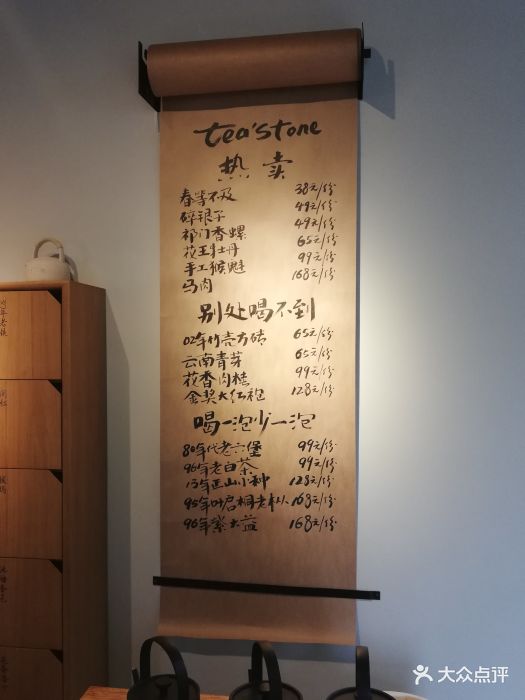 tea'stone
热 卖
春等不及 38元/份
碎银子 49元/份
祁门香螺 49元/份
花王牡丹 65元/份
手工猴魁 99元/份
马肉 168元/份
别处喝不到
02年竹壳方砖 65元/份
云南青芽 65元/份
花香肉桂 99元/份
金奖大红袍 128元/份
喝一泡少一泡
80年代老六堡 99元/份
96年老白茶 99元/份
13年正山小种 128元/份
95年叶启桐老枞 168元/份
96年紫大益 168元/份
大众点评